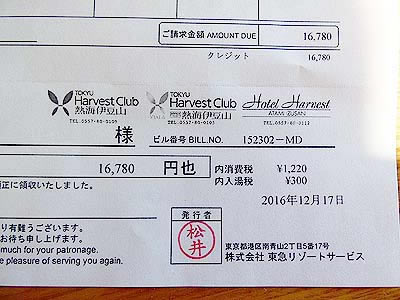 ご請求金額 AMOUNT DUE 16,780
クレジット 16,780
TOKYU Harvest Club 熱海伊豆山 TEL.0557-80-0109
TOKYU Harvest Club VIALA 熱海伊豆山
Hotel Harvest ATAMI IZUSAN
様 ビル番号 BILL.NO. 152302-MD
16,780 円也
内消費税 ¥1,220
内入湯税 ¥300
正に領収いたしました。
2016年12月17日
り有難うございます。
お待ち申し上げます。
much for your patronage.
e pleasure of serving you again.
発行者
松井
東京都港区南青山2丁目5番17号
株式会社 東急リゾートサービス